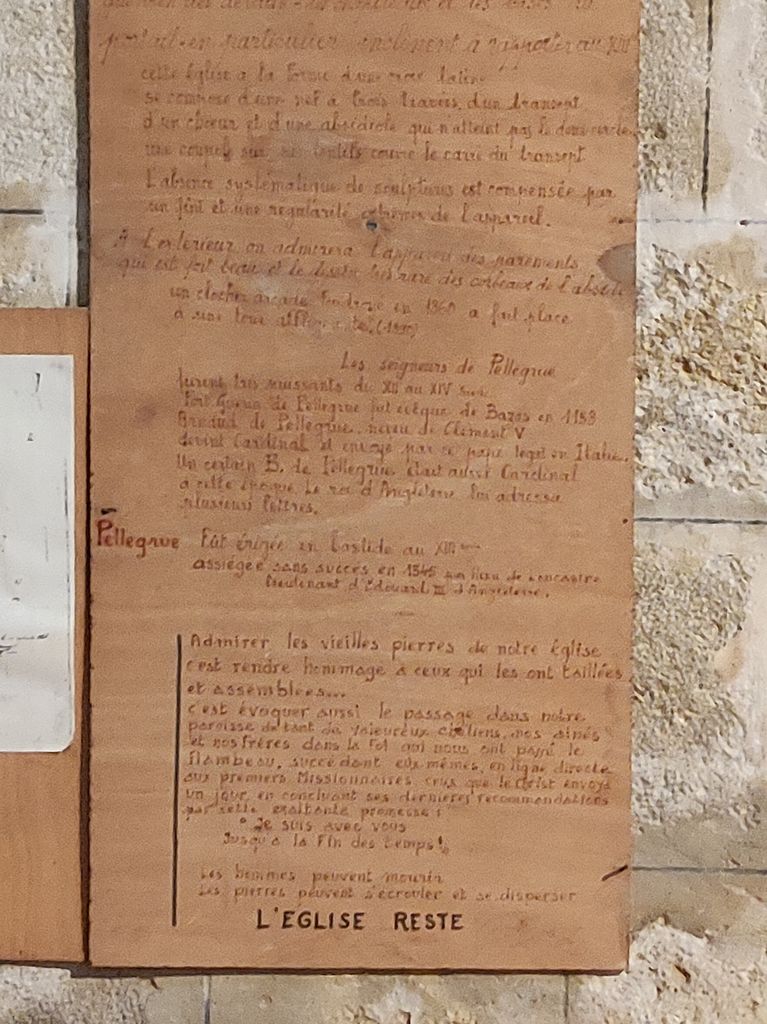 portail en particulier inclinent à rapporter au XIII
cette église a la forme d'une croix latine
se compose d'une nef à trois travées, d'un transept
d'un chœur et d'une absidiole qui n'atteint pas le demi-cercle
une coupole sur pendentifs couvre le carré du transept
L'absence systématique de sculptures est compensée par
un fini et une régularité extrêmes de l'appareil.
A l'extérieur on admirera l'appareil des parements
qui est fort beau et le dessin très rare des corbeaux de l'abside
un clocher arcade en 1860 a fait place
à une tour
Les seigneurs de Pellegrue
furent très puissants du XII au XIV siècle
de Pellegrue fut évêque de Bazas en 1153
Arnaud de Pellegrue, neveu de Clément V
devint Cardinal et envoyé par ce pape légat en Italie.
Un certain B. de Pellegrue était aussi Cardinal
à cette époque. Le roi d'Angleterre lui adressa
plusieurs lettres.
Pellegrue Fût érigée en bastide au XIII
assiégée sans succès en 1345
lieutenant d'Edouard III d'Angleterre.
Admirer les vieilles pierres de notre église
c'est rendre hommage à ceux qui les ont taillées
et assemblées...
c'est évoquer aussi le passage dans notre
paroisse de tant de valeureux chrétiens, nos aînés
et nos frères dans la Foi qui nous ont passé le
flambeau, succédant eux mêmes, en ligne directe
aux premiers Missionnaires, ceux que le Christ envoya
un jour, en concluant ses dernières recommandations
par cette exaltante promesse :
" Je suis avec vous
Jusqu'à la Fin des temps!"
Les hommes peuvent mourir
Les pierres peuvent s'écrouler et se disperser
L'EGLISE RESTE